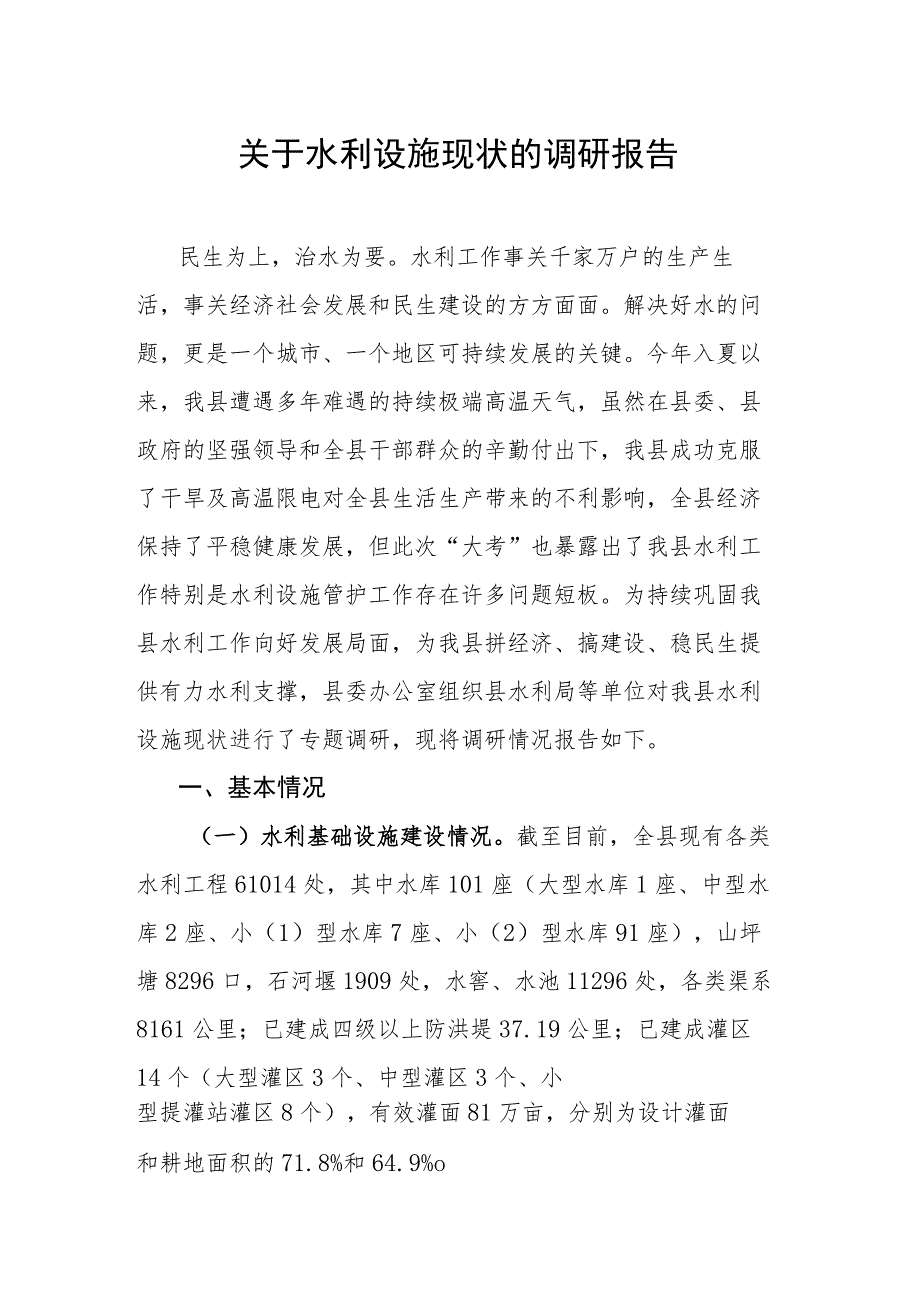 关于水利设施现状的调研报告
民生为上，治水为要。水利工作事关千家万户的生产生
活，事关经济社会发展和民生建设的方方面面。解决好水的问
题，更是一个城市、一个地区可持续发展的关键。今年入夏以
来，我县遭遇多年难遇的持续极端高温天气，虽然在县委、县
政府的坚强领导和全县干部群众的辛勤付出下，我县成功克服
了干旱及高温限电对全县生活生产带来的不利影响，全县经济
保持了平稳健康发展，但此次“大考”也暴露出了我县水利工
作特别是水利设施管护工作存在许多问题短板。为持续巩固我
县水利工作向好发展局面，为我县拼经济、搞建设、稳民生提
供有力水利支撑，县委办公室组织县水利局等单位对我县水利
设施现状进行了专题调研，现将调研情况报告如下。
一、基本情况
（一）水利基础设施建设情况。截至目前，全县现有各类
水利工程 61014 处，其中水库 101 座（大型水库 1 座、中型水
库 2 座、小（1）型水库 7 座、小（2）型水库 91 座），山坪
塘 8296 口，石河堰 1909 处，水窖、水池 11296 处，各类渠系
8161 公里；已建成四级以上防洪堤 37.19 公里；已建成灌区
14 个（大型灌区 3 个、中型灌区 3 个、小
型提灌站灌区 8 个），有效灌面 81 万亩，分别为设计灌面
和耕地面积的 71.8%和 64.9%o